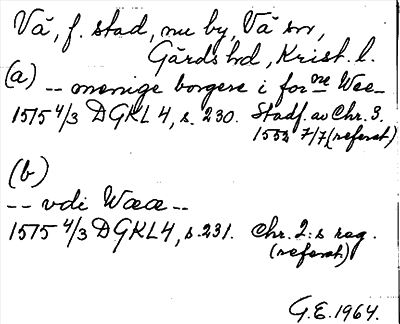 Vä, f. stad, nu by, Vä sn,
Gärds hd, Krist. l.
(a) -- menige borgere i forne Wee--
1515 4/3 DGKL 4, s. 230. Stadf. av Chr. 3.
1552 7/7, (referat)
(b)
-- vdi Wææ --
1515 4/3 DGKL 4, s. 231. Chr. 2:s reg.
(referat)
G.E. 1964.